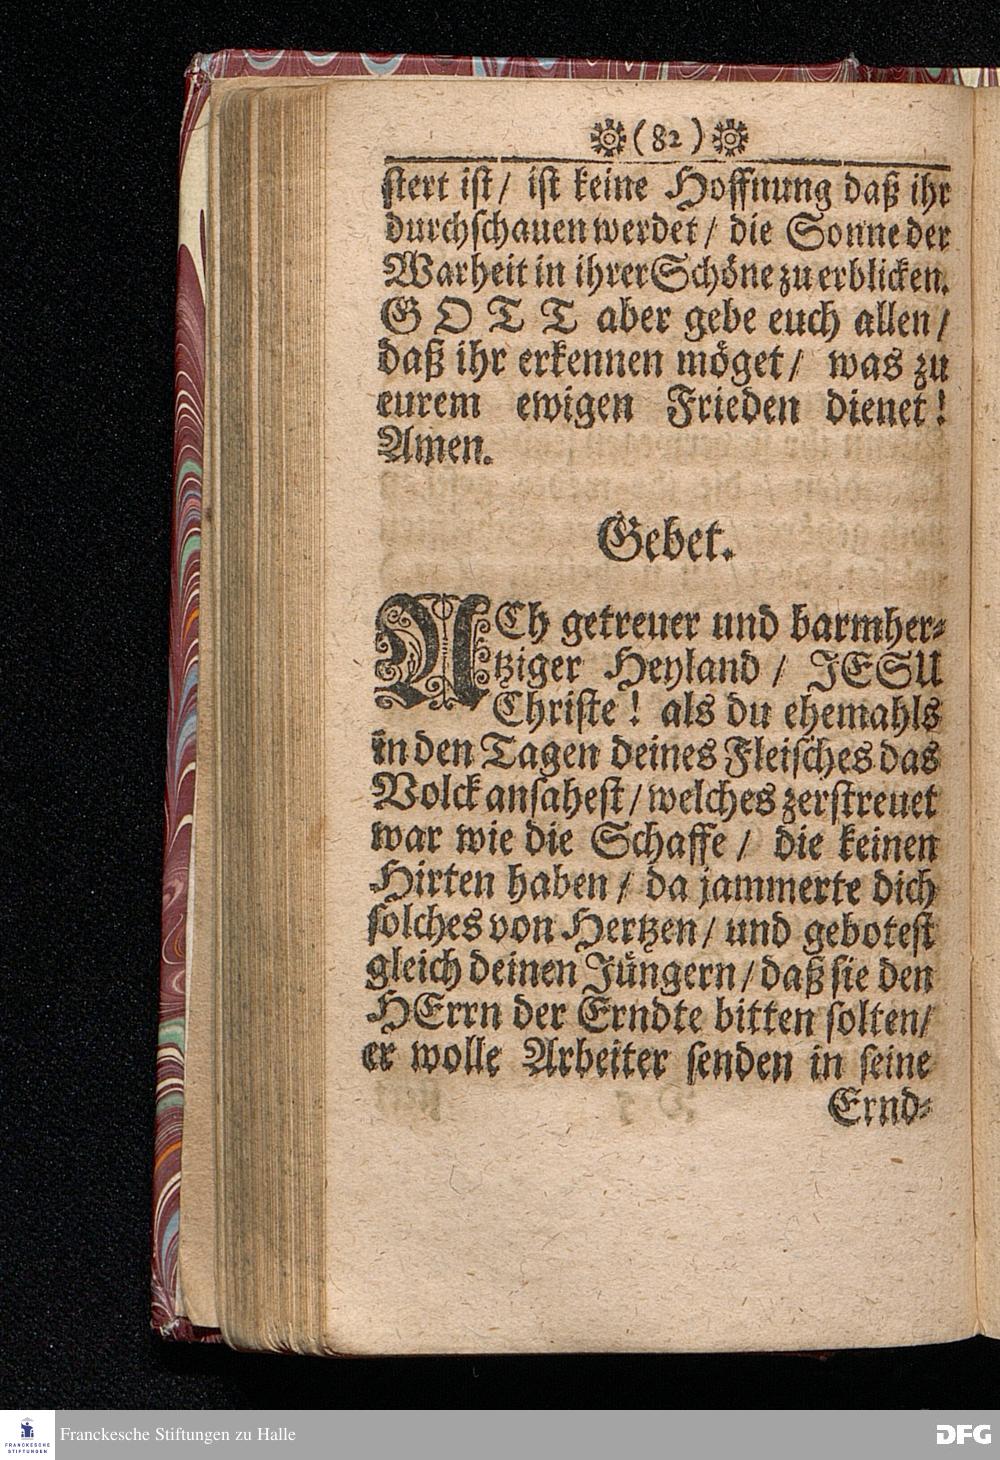 (82)
stert ist/ ist keine Hoffnung daß ihr
durchschauen werdet/ die Sonne der
Warheit in ihrer Schöne zu erblicken.
GOTT aber gebe euch allen/
daß ihr erkennen möget/ was zu
eurem ewigen Frieden dienet!
Amen.
Gebet.
ACh getreuer und barmher-
tziger Heyland/ JESU
Christe! als du ehemahls
in den Tagen deines Fleisches das
Volck ansahest/ welches zerstreuet
war wie die Schaffe/ die keinen
Hirten haben/ da jammerte dich
solches von Hertzen/ und gebotest
gleich deinen Jüngern/ daß sie den
HErrn der Erndte bitten solten/
er wolle Arbeiter senden in seine
Ernd-
FRANCKESCHE
STIFTUNGEN
Franckesche Stiftungen zu Halle
DFG